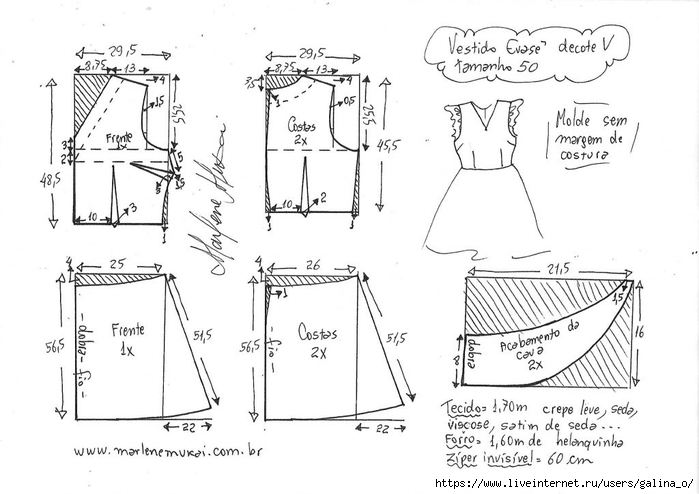 Vestido Evasê decote V
tamanho 50
Molde sem
margem de
costura
29,5
8,75
13
4
15
25,5
Frente
1x
3
2
48,5
1,5
3
1,5
10
3
1
Marlene Mukai
29,5
8,75
13
4
3,5
1
0,5
25,5
Costas
2x
45,5
10
2
1
1
4
25
56,5
dobra
fio
Frente
1x
51,5
22
4
26
1
56,5
Costas
2x
51,5
22
21,5
1,5
16
8
dobra
Acabamento da
cava
2x
Tecido= 1,70m crepe leve, seda,
viscose, satim de seda...
Forro= 1,60m de helanquinha
Zíper invisível= 60 cm
www.marlenemukai.com.br
https://www.liveinternet.ru/users/galina_o/